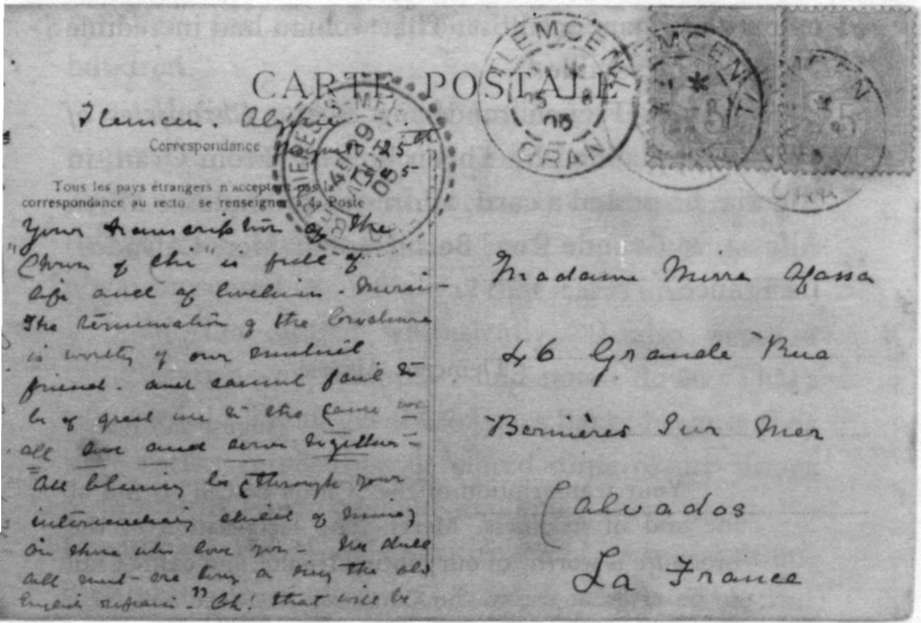 CARTE POSTALE
TLEMCEN
ORAN
Tlemcen. Algérie
Correspondance August 25
1905
Tous les pays étrangers n'acceptent pas la
correspondance au recto se renseigner à la Poste
Your transcription of the
is full of
life and of
The termination of the brochure
is worthy of our
friend. and cannot fail to
be of great use to the Cause we
all love and serve together
All blessing be (through your
intermediary child of mine)
on those who love you - We shall
all meet ere long & sing the old
English refrain." Oh! that will be
Madame Mirra
46 Grande Rue
Bernières Sur Mer
Calvados
La France